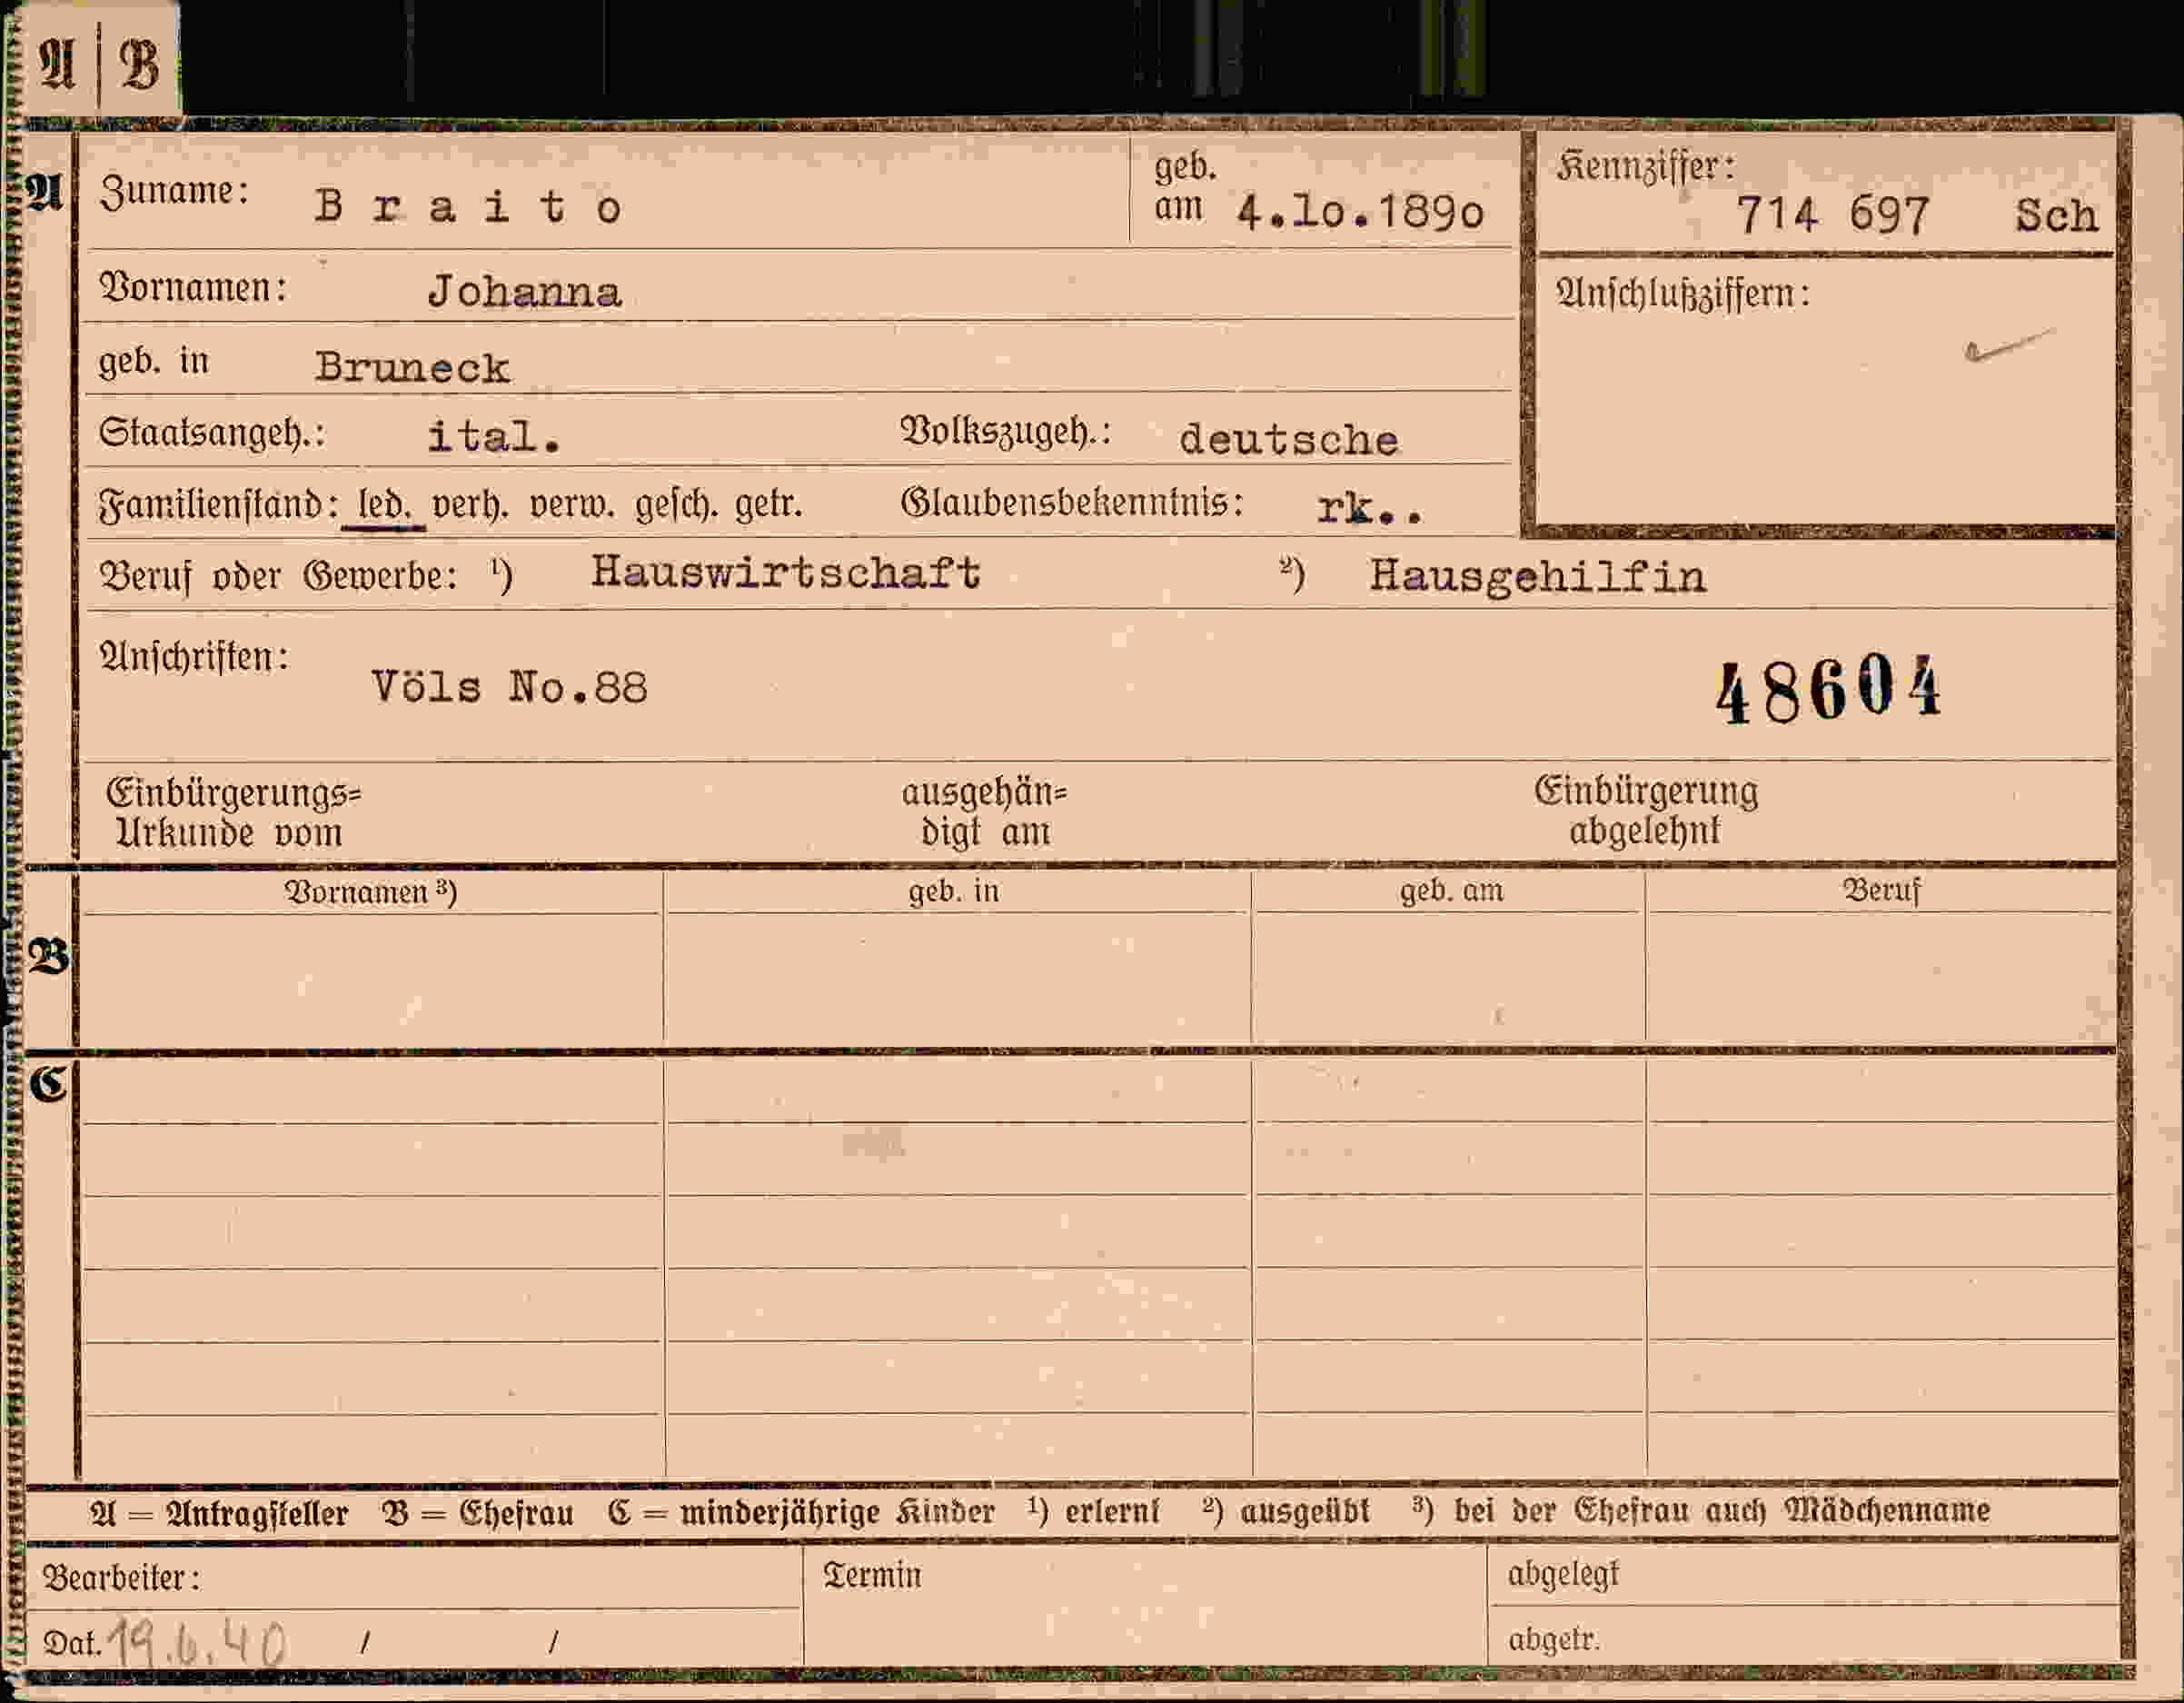 A | B
A
Zuname: Braito
geb. am 4.10.1890
Kennziffer: 714 697 Sch
Vornamen: Johanna
Anschlußziffern:
geb. in Bruneck
Staatsangeh.: ital. Volkszugeh.: deutsche
Familienstand: led. verh. verw. gesch. getr. Glaubensbekenntnis: rk..
Beruf oder Gewerbe: ¹) Hauswirtschaft ²) Hausgehilfin
Anschriften: Völs No.88
48604
Einbürgerungs= ausgehän= Einbürgerung
Urkunde vom digt am abgelehnt
Vornamen ³) geb. in geb. am Beruf
B
C
A = Antragsteller B = Ehefrau C = minderjährige Kinder ¹) erlernt ²) ausgeübt ³) bei der Ehefrau auch Mädchenname
Bearbeiter: Termin abgelegt
Dat. 19.6.40 / / abgetr.